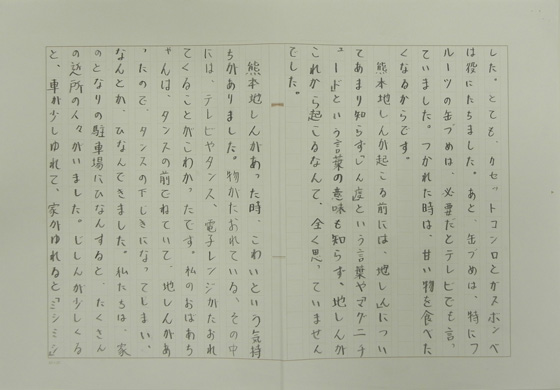 した。とても、カセットコンロとガスボンベ
は役にたちました。あと、缶づめは、特にフ
ルーツの缶づめは、必要だとテレビでも言っ
ていました。つかれた時は、甘い物を食べた
くなるからです。
熊本地しんが起こる前には、地しんについ
てあまり知らずしん度という言葉やマグニチ
ュードという言葉の意味も知らず。地しんが
これから起こるなんて、全く思っていません
でした。
熊本地しんがあった時、こわいという気持
ちがありました。物がたおれている、その中
には、テレビやタンス、電子レンジがたおれ
てくることがこわかったです。私のおばあち
ゃんは、タンスの前でねていて、地しんがあ
ったので、タンスの下じきになってしまい、
なんとか、ひなんできました。私たちは、家
のとなりの駐車場にひなんすると、たくさん
の近所の人々がいました。じしんが少しくる
と、車が少しゆれて、家がゆれると『ミシミシ』